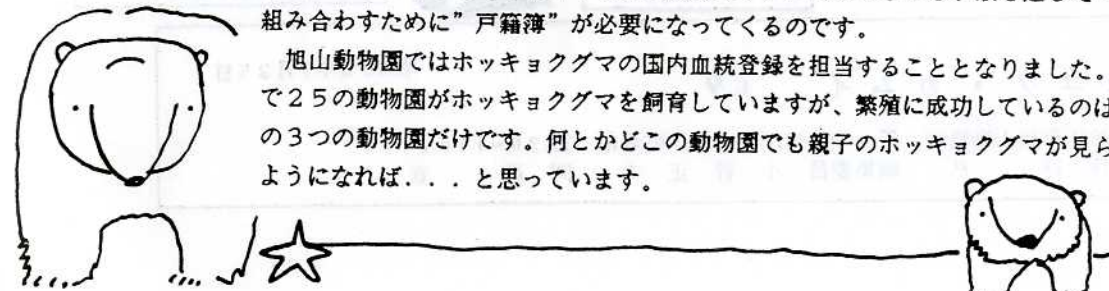 組み合わすために”戸籍簿”が必要になってくるのです。
旭山動物園ではホッキョクグマの国内血統登録を担当することとなりました。
で２５の動物園がホッキョクグマを飼育していますが、繁殖に成功しているのは
の３つの動物園だけです。何とかどこの動物園でも親子のホッキョクグマが見ら
ようになれば．．．と思っています。